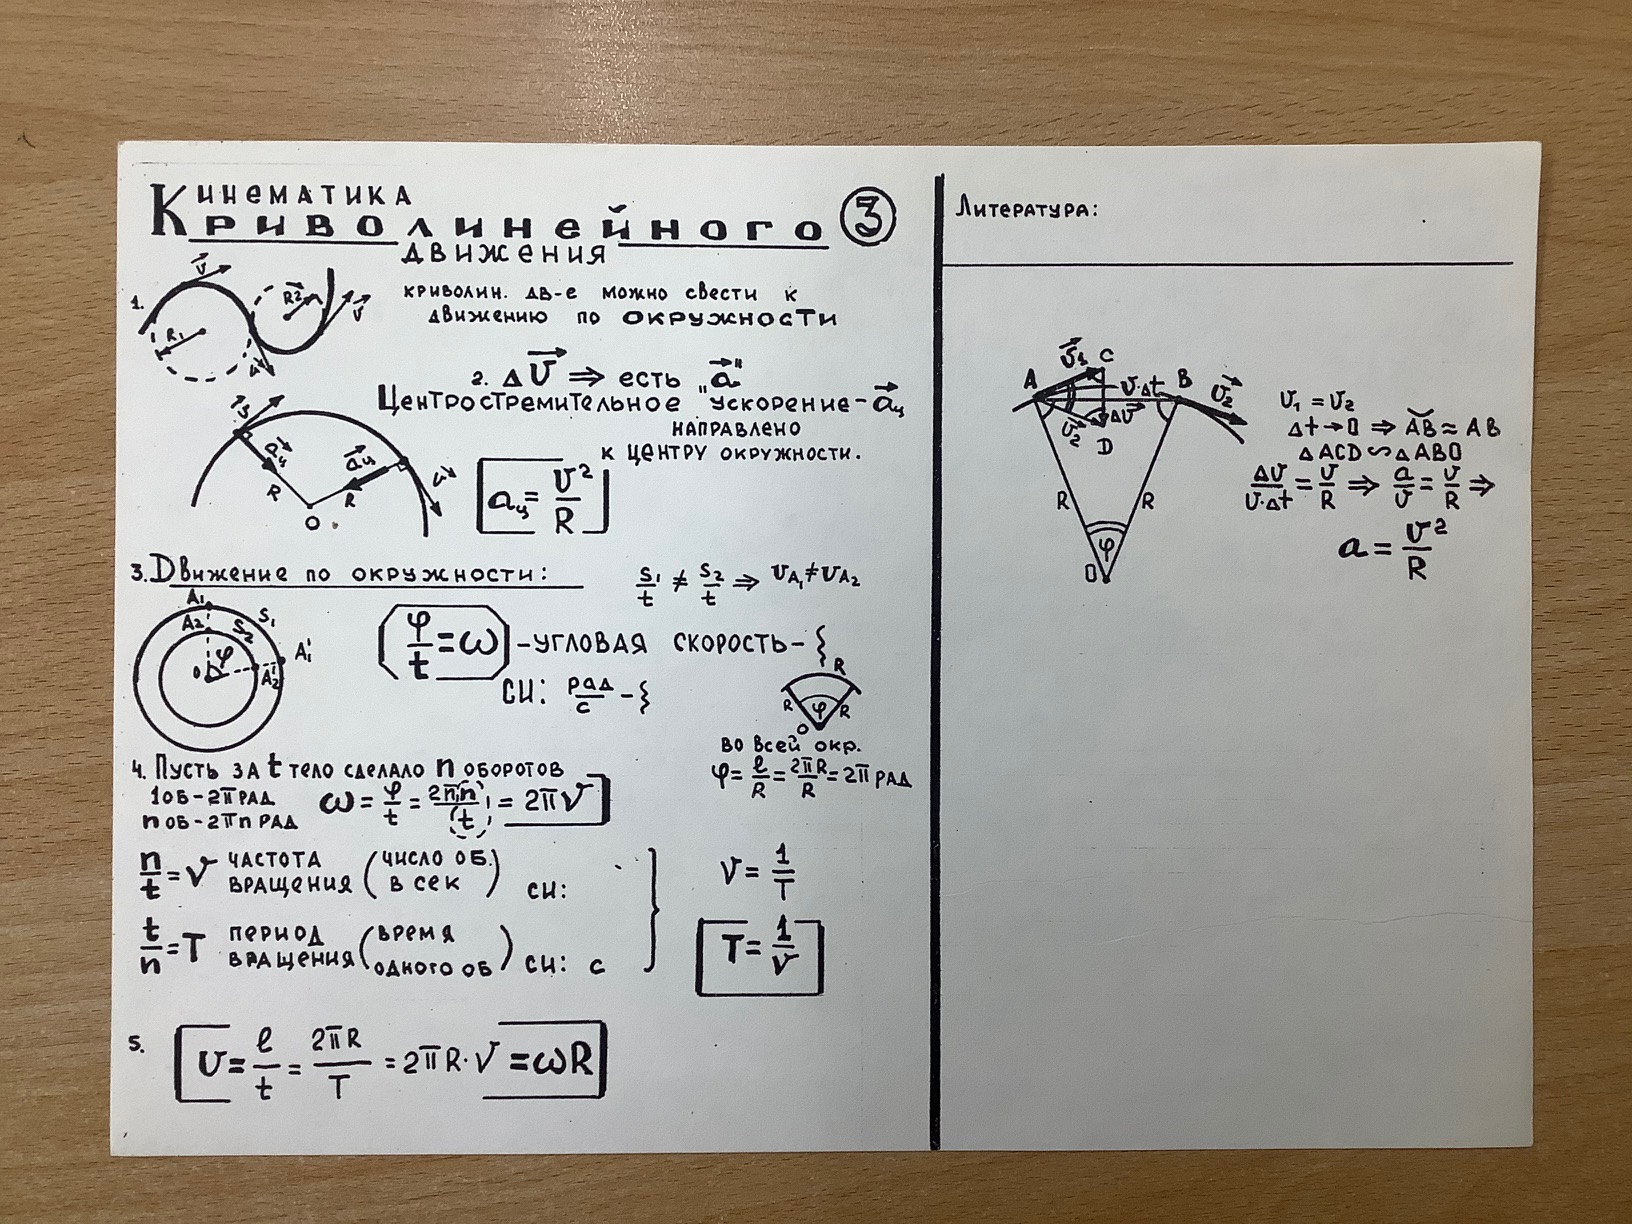 Кинематика
Криволинейного ③
движения
1.
v⃗
R₁
R₂
v⃗
v⃗
криволин. дв-е можно свести к
движению по окружности
2. Δv⃗ ⇒ есть "a⃗"
Центростремительное "ускорение - a⃗ц
направлено
к центру окружности.
v⃗
a⃗ц
R
a⃗ц
R
v⃗
O
aц = v²/R
3. Движение по окружности:
S₁/t ≠ S₂/t ⇒ v_A₁ ≠ v_A₂
A₁
A₂
S₁
S₂
φ
O
A₁'
A₂'
φ/t = ω - угловая скорость - {
СИ: рад/с - {
R
R
φ
R
O
во всей окр.
φ = ℓ/R = 2πR/R = 2π рад
4. Пусть за t тело сделало n оборотов
1 об - 2π рад
n об - 2πn рад
ω = φ/t = 2πn/t = 2πν
n/t = ν частота вращения (число об. в сек) СИ:
t/n = T период вращения (время одного об) СИ: с
ν = 1/T
T = 1/ν
5. v = ℓ/t = 2πR/T = 2πR·ν = ωR
Литература:
A
v⃗₁
C
v·Δt
B
v⃗₂
v⃗₂
Δv⃗
D
R
R
φ
O
v₁ = v₂
Δt → 0 ⇒ ÃB ≈ AB
ΔACD ∽ ΔABO
Δv/v·Δt = v/R ⇒ a/v = v/R ⇒
a = v²/R